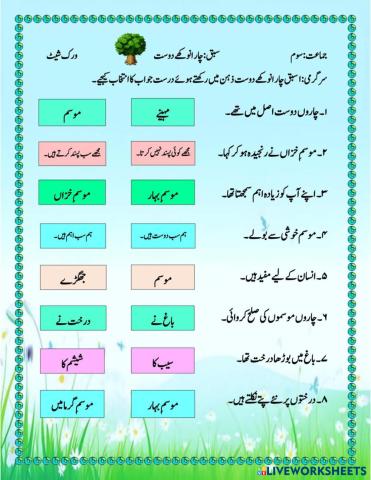 جماعت: سوم سبق: چار انوکھے دوست ورک شیٹ
سرگرمی: اسبق چار انوکھے دوست ذہن میں رکھتے ہوئے درست جواب کا انتخاب کیجیے۔
۱۔ چاروں دوست اصل میں تھے۔ مہینے موسم
۲۔ موسم خزاں نے رنجیدہ ہو کر کہا۔ مجھے کوئی پسند نہیں کرتا۔ مجھے سب پسند کرتے ہیں۔
۳۔ اپنے آپ کو زیادہ اہم سمجھتا تھا۔ موسم بہار موسم خزاں
۴۔ موسم خوشی سے بولے۔ ہم سب دوست ہیں۔ ہم سب اہم ہیں۔
۵۔ انسان کے لیے مفید ہیں۔ موسم جھگڑے
۶۔ چاروں موسموں کی صلح کروائی۔ باغ نے درخت نے
۷۔ باغ میں بوڑھا درخت تھا۔ سیب کا شیشم کا
۸۔ درختوں پر نئے پتے نکلتے ہیں۔ موسم بہار موسم گرما میں
LIVEWORKSHEETS